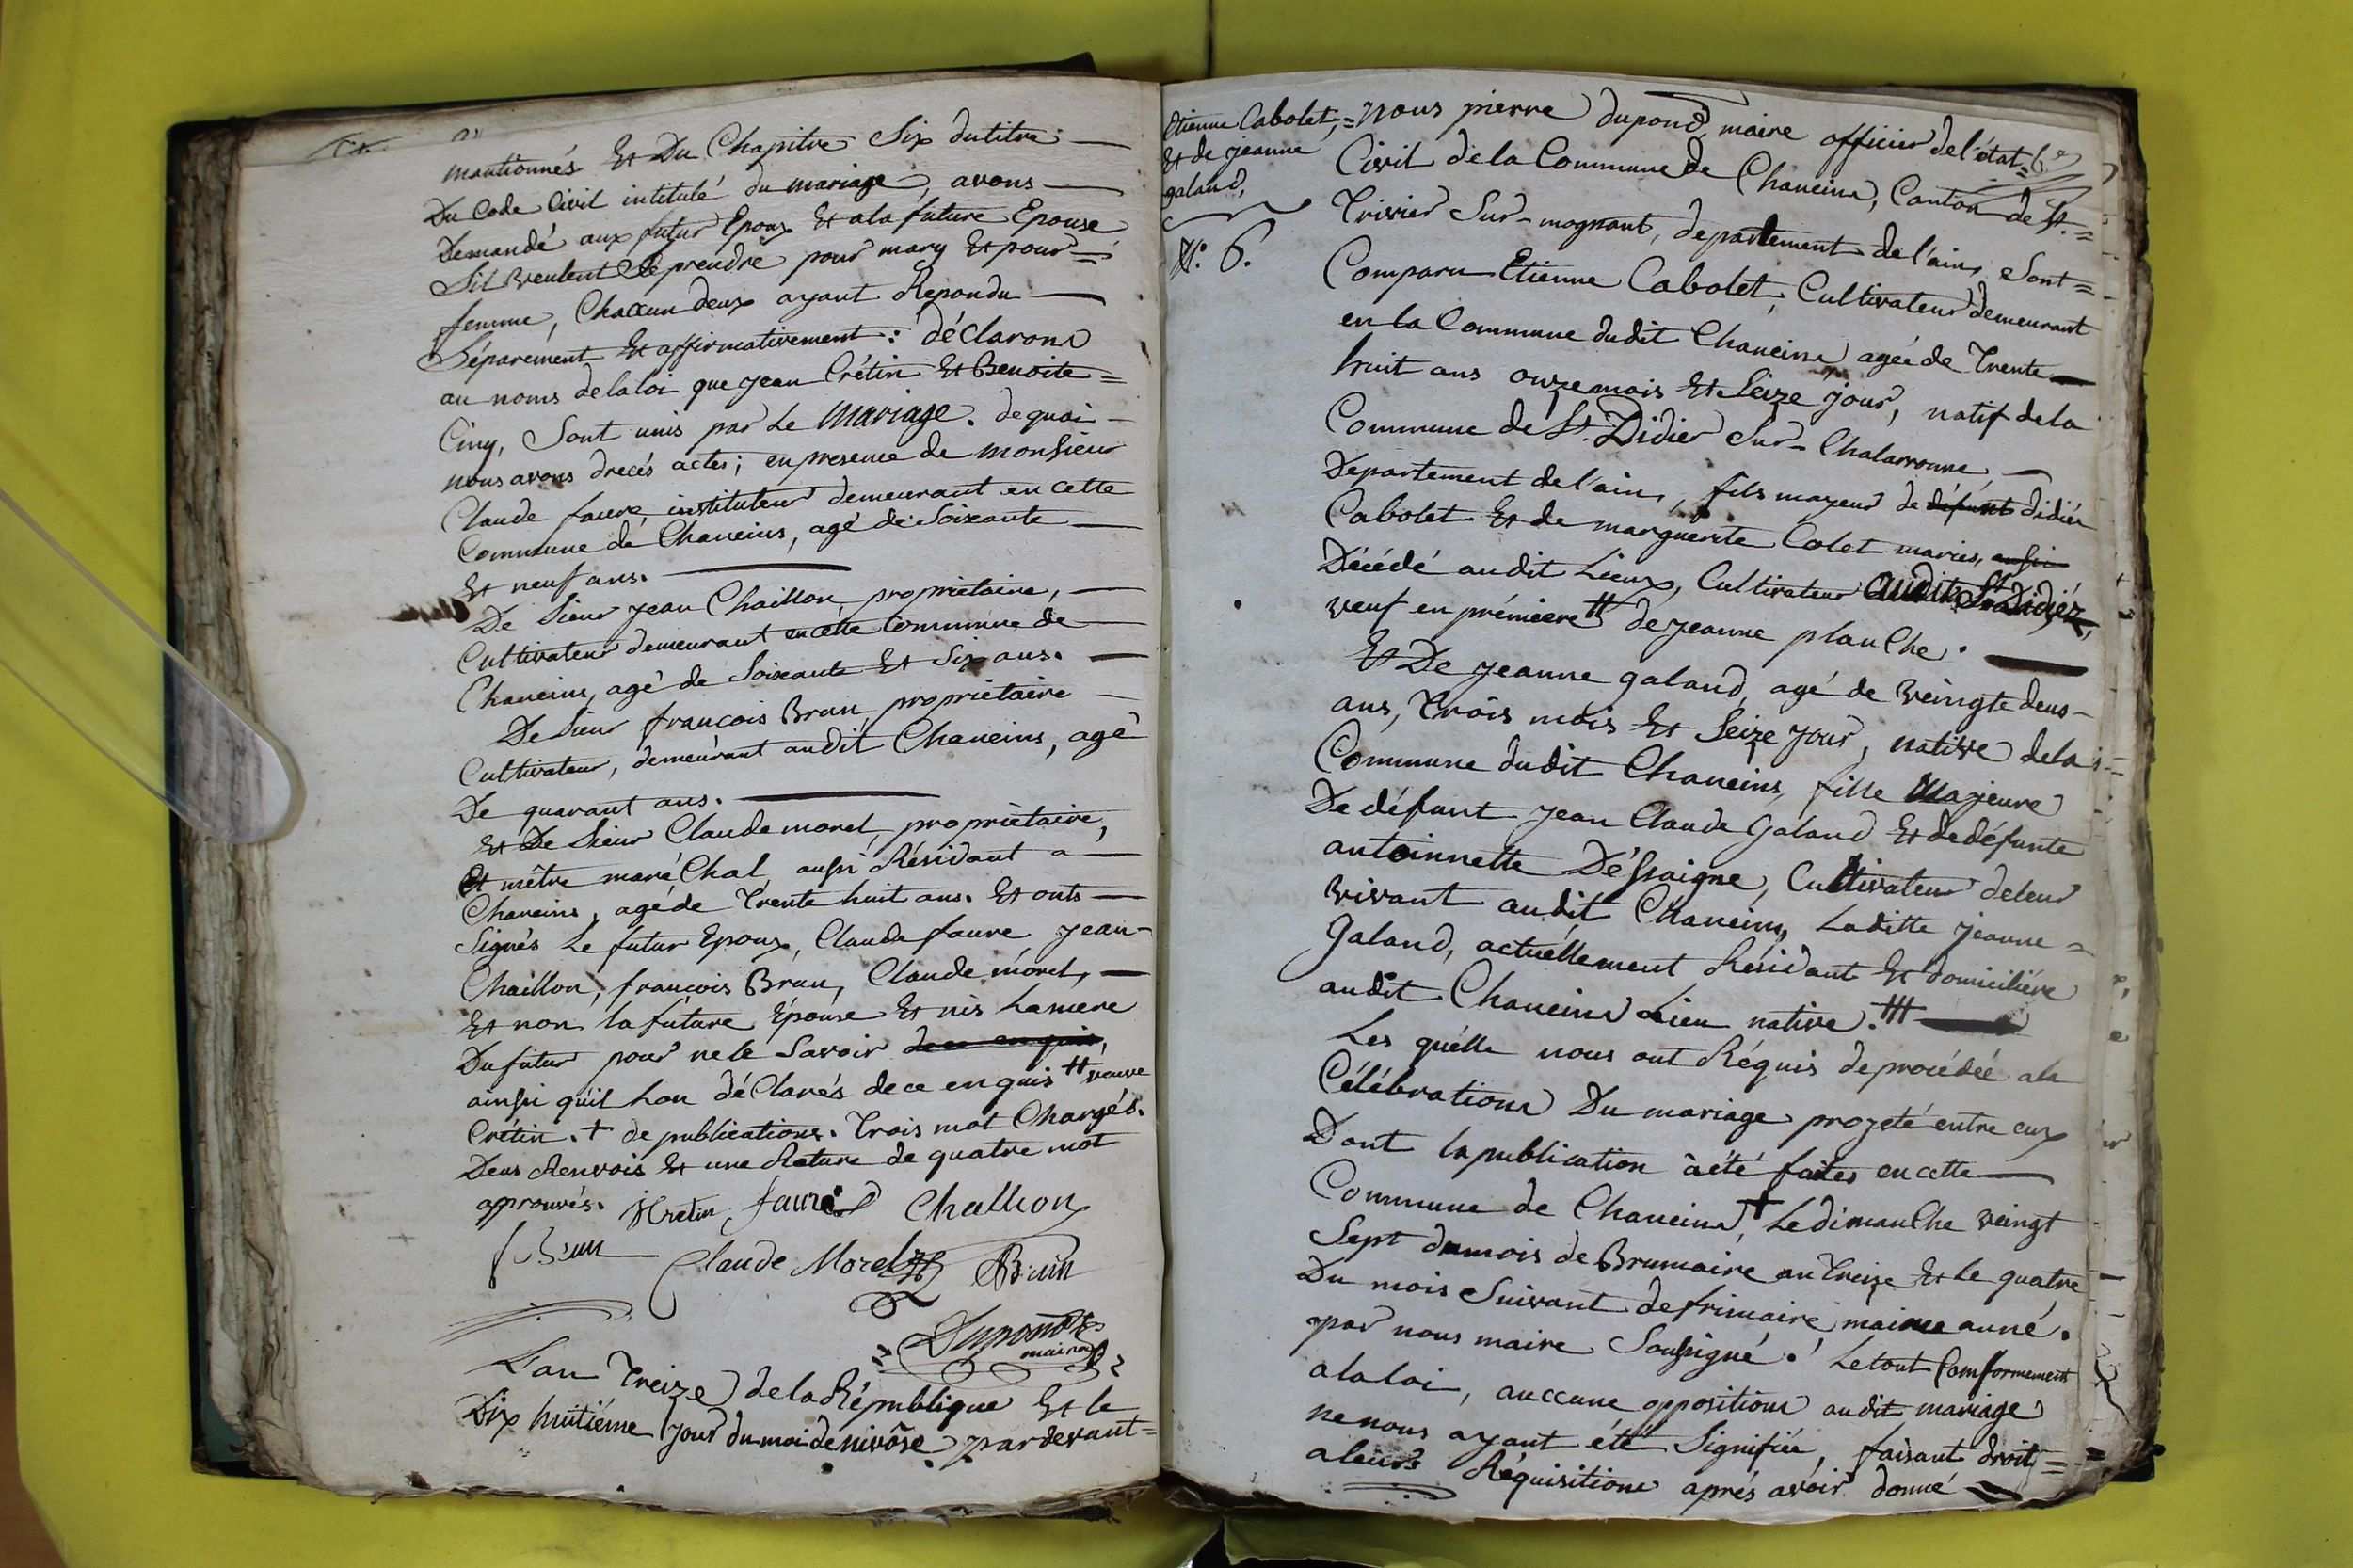 mantionnés Et Du Chapitre Six du titre
Du Code Civil intitulé du mariage, avons
Demandé aux futur Epoux Et a la future Epouse
Sil veulent Se prendre pour mary Et pour =
femme, Chaccun deux ayant Repondu
Séparement Et affirmativement : déClarons
au noms de la loi que jean Crétin Et Benoite =
Cinq, Sont unis par Le Mariage. de quoi
nous avons drecés actes ; en presence de monsieur
Claude faure, instituteur demeurant en cette
Commune de Chaneins, agé de Soixante
Et neuf ans.
De Sieur jean Chaillon, propriétaire,
Cultivateur demeurant en cette Commune de
Chaneins, agé de Soixante Et Six ans.
De Sieur francois Brun, propriétaire
Cultivateur, demeurant audit Chaneins, agé
De quarant ans.
Et De Sieur Claude morel, propriètaire,
Et mêtre maréChal, aussi Résidant a
Chaneins, agé de Trente huit ans. Et onts
Signés Le futur Epoux, Claude faure, jean-
Chaillon, françois Brun, Claude morel,
Et non la future Epouse Et nis La mere
Du futur pour ne le Savoir de ce enquis,
ainssi quil Lon déClarés de ce enquis ++ veuve
Crétin. + de publications. Trois mot Chargés.
Deux Renvois Et une Rature de quatre mot
aprouvés. jCretin faure Chaillon
f Brun Claude Morel Brun
Dupond
maire
L'an Treize de la République Et le
Dix huitiéme jour du moi de nivôse, pardevant =
Etienne Cabolet,
Et de jeanne
galand,
N°. 6.
= Nous pierre dupond, maire officier de l'état =
Civil de la Commune de Chaneins, Canton de St. =
Trivier Sur-mognant, departement de l'ain, Sont =
Comparu Etienne Cabolet, Cultivateur demeurant
en la Commune dudit Chaneins agée de Trente
huit ans onze mois Et Seize jour, natif de la
Commune de St. Didier Sur-Chalaronne,
Departement de l'ain, fils mayeur de défunt didiér
Cabolet Et de marguerite Colet mariés, aussi
Décédé audit Lieux, Cultivateur audit St. Didiér,
veuf en prémiere ++ de jeanne planChe.
Et De jeanne galand, agé de veingte deus-
ans, Trois mois Et Seize jour, native de la
Commune dudit Chaneins, fille Majeure
De défunt jean Claude Galand Et de défunte
antoinnette Déssaigne, Cultivateur de leur
vivant audit Chaneins, Laditte jeanne =
Galand, actuéllement Résidant Et domiciliére
audit Chaneins Lieu native. +++
Les quélle nous ont Réquis de procédée a la
Célébrations Du mariage projeté entre eux
Dont la publication à été faites en cette
Commune de Chaneins, + Le dimanChe veingt
Sept du mois de Brumaire an treize Et le quatre
Du mois Suivant de frimaire maime anné.
par nous maire Soussigné. Le tout Comformement
a la loi, auccune oppositions audit mariage
ne nous ayant été Signifiée, faisant droit =
a leurs Réquisitions aprés avoir donné